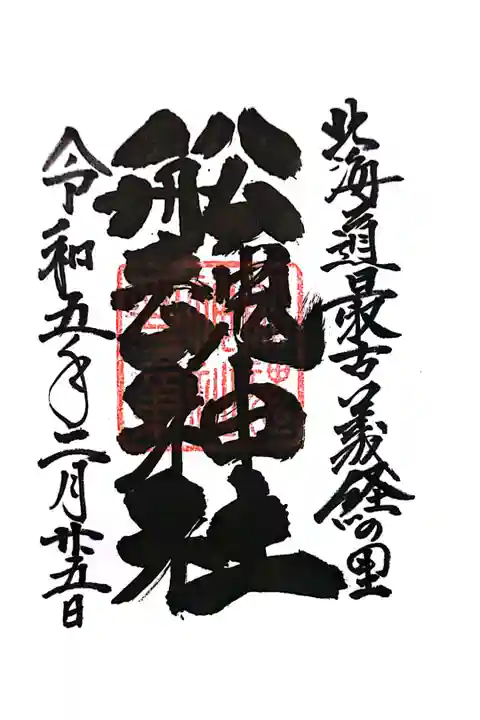 北海道最古義経の里
船魂神社
令和五年二月廿五日